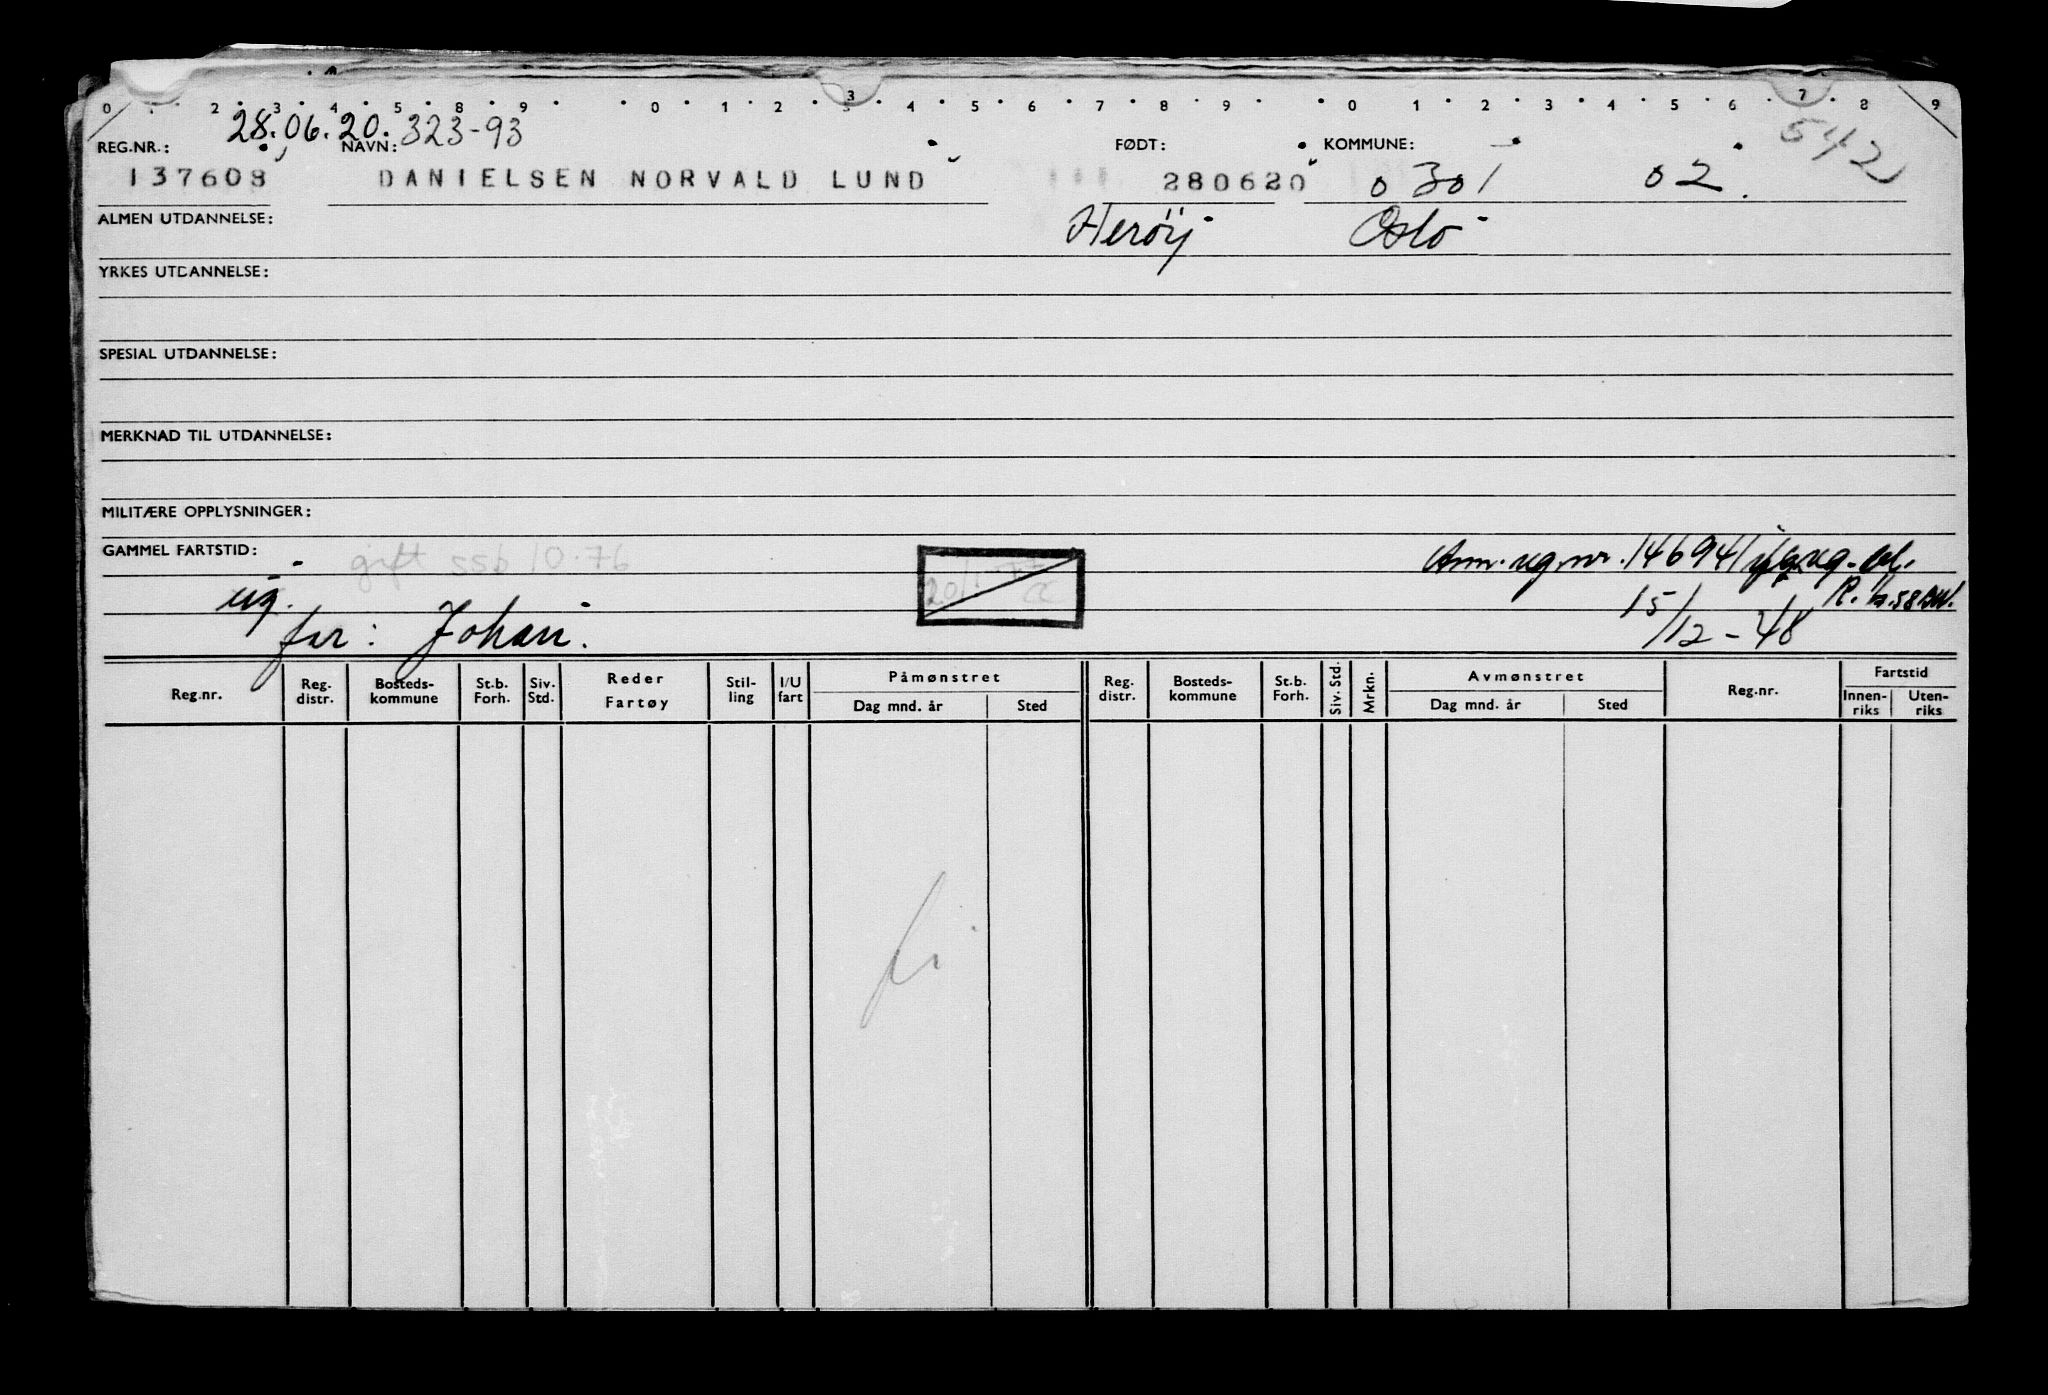 0 . 2 . 3 . 4 . 5 . 8 . 9 . . 0 . 1 . 2 . 3 . 4 . 5 . 6 . 7 . 8 . 9 . . 0 . 1 . 2 . 3 . 4 . 5 . 6 . 7 . 8 . 9
28.06.20. 323-93
REG.NR.: NAVN: FØDT: KOMMUNE: 542
137608 DANIELSEN NORVALD LUND 280620 0301 02.
ALMEN UTDANNELSE: Herøy Oslo
YRKES UTDANNELSE:
SPESIAL UTDANNELSE:
MERKNAD TIL UTDANNELSE:
MILITÆRE OPPLYSNINGER:
GAMMEL FARTSTID: gift ssb 10.76
Ann. reg.nr. 146941
ug.
15/12-48
far: Johan.
Reg.nr. Reg. distr. Bosteds- kommune St.b. Forh. Siv. Std. Reder Fartøy Stil- ling I/U fart Påmønstret Dag mnd. år Sted Reg. distr. Bosteds- kommune St.b. Forh. Siv. Std. Mrkn. Avmønstret Dag mnd. år Sted Reg.nr. Fartstid Innen- riks Uten- riks